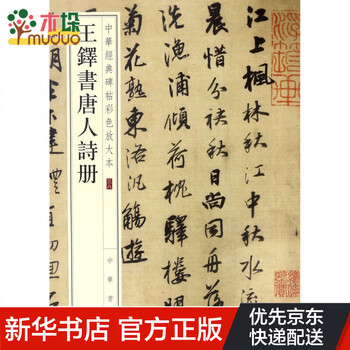 木垛
muduo
中華經典碑帖彩色放大本
王鐸書唐人詩册
中華書
江上楓林秋江中秋水流
晨惜分袂秋日尚同舟落
洗漁浦傾荷枕驛樓明
菊花熟東洛汎觴遊
新华书店官方正版
优先京东
快递配送